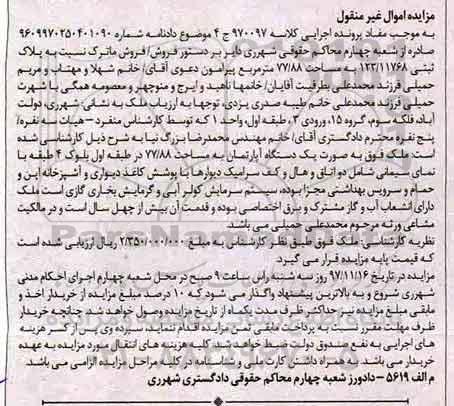 مزایده اموال غیر منقول
به موجب مفاد پرونده اجرایی کلاسه ۹۷۰۰۹۷ ج ۴ موضوع دادنامه شماره ۹۶۰۹۹۷۰۲۵۰۴۰۱۰۹۰
صادره از شعبه چهارم محاکم حقوقی شهرری دایر بر دستور فروش/ فروش ماترک نسبت به پلاک
ثبتی ۱۲۳/۱۱۷۶۸ به مساحت ۷۷/۸۸ مترمربع پیرامون دعوی آقای/ خانم شهلا و مهتاب و مریم
حمیلی فرزند محمدعلی بطرفیت آقایان/ خانمها ناهید و ایرج و منوچهر و معصومه همگی با شهرت
حمیلی فرزند محمدعلی خانم طیبه صدری یزدی، توجها به ارزیاب ملک به نشانی: شهرری، دولت
آباد، فلکه سوم، گروه ۱۵، ورودی ۳، طبقه اول، واحد ۱ که توسط کارشناس منفرد – هیات سه نفره/
پنج نفره محترم دادگستری آقای/ خانم مهندس محمدرضا بزرگ نیا به شرح ذیل کارشناسی شده
است: ملک فوق به صورت یک دستگاه آپارتمان به مساحت ۷۷/۸۸ در طبقه اول بلوک ۴ طبقه با
نمای سیمانی شامل دو اتاق و هال و کف سرامیک دیوارها با پوشش کاغذ دیواری و آشپزخانه اپن و
حمام و سرویس بهداشتی مجزا بوده، سیستم سرمایش کولر آبی و گرمایش بخاری گازی است ملک
دارای انشعاب آب و گاز مشترک و برق اختصاصی بوده و قدمت آن بیش از چهل سال است و در مالکیت
مشاعی ورثه مرحوم محمدعلی حمیلی می باشد.
نظریه کارشناسی: ملک فوق طبق نظر کارشناس به مبلغ ۲/۳۵۰/۰۰۰/۰۰۰ ریال ارزیابی شده است
که قیمت پایه مزایده قرار می گیرد.
مزایده در تاریخ ۹۷/۱۱/۱۶ روز سه شنبه راس ساعت ۹ صبح در محل شعبه چهارم اجرای احکام مدنی
شهرری شروع و به بالاترین پیشنهاد واگذار می شود که ۱۰ درصد مبلغ مزایده از خریدار اخذ و
مابقی مبلغ مزایده نیز حداکثر ظرف مدت یکماه از تاریخ مزایده وصول خواهد شد. چنانچه خریدار
ظرف مهلت مقرر نسبت به پرداخت مابقی ثمن مزایده اقدام ننماید، سپرده وی پس از کسر هزینه
های اجرایی به نفع صندوق دولت ضبط خواهد شد. کلیه هزینه های انتقال مورد مزایده به عهده
خریدار می باشد. به همراه داشتن کارت ملی و شناسنامه در کلیه مراحل مزایده الزامی می باشد.
م الف ۵۶۱۹ – دادورز شعبه چهارم محاکم حقوقی دادگستری شهرری